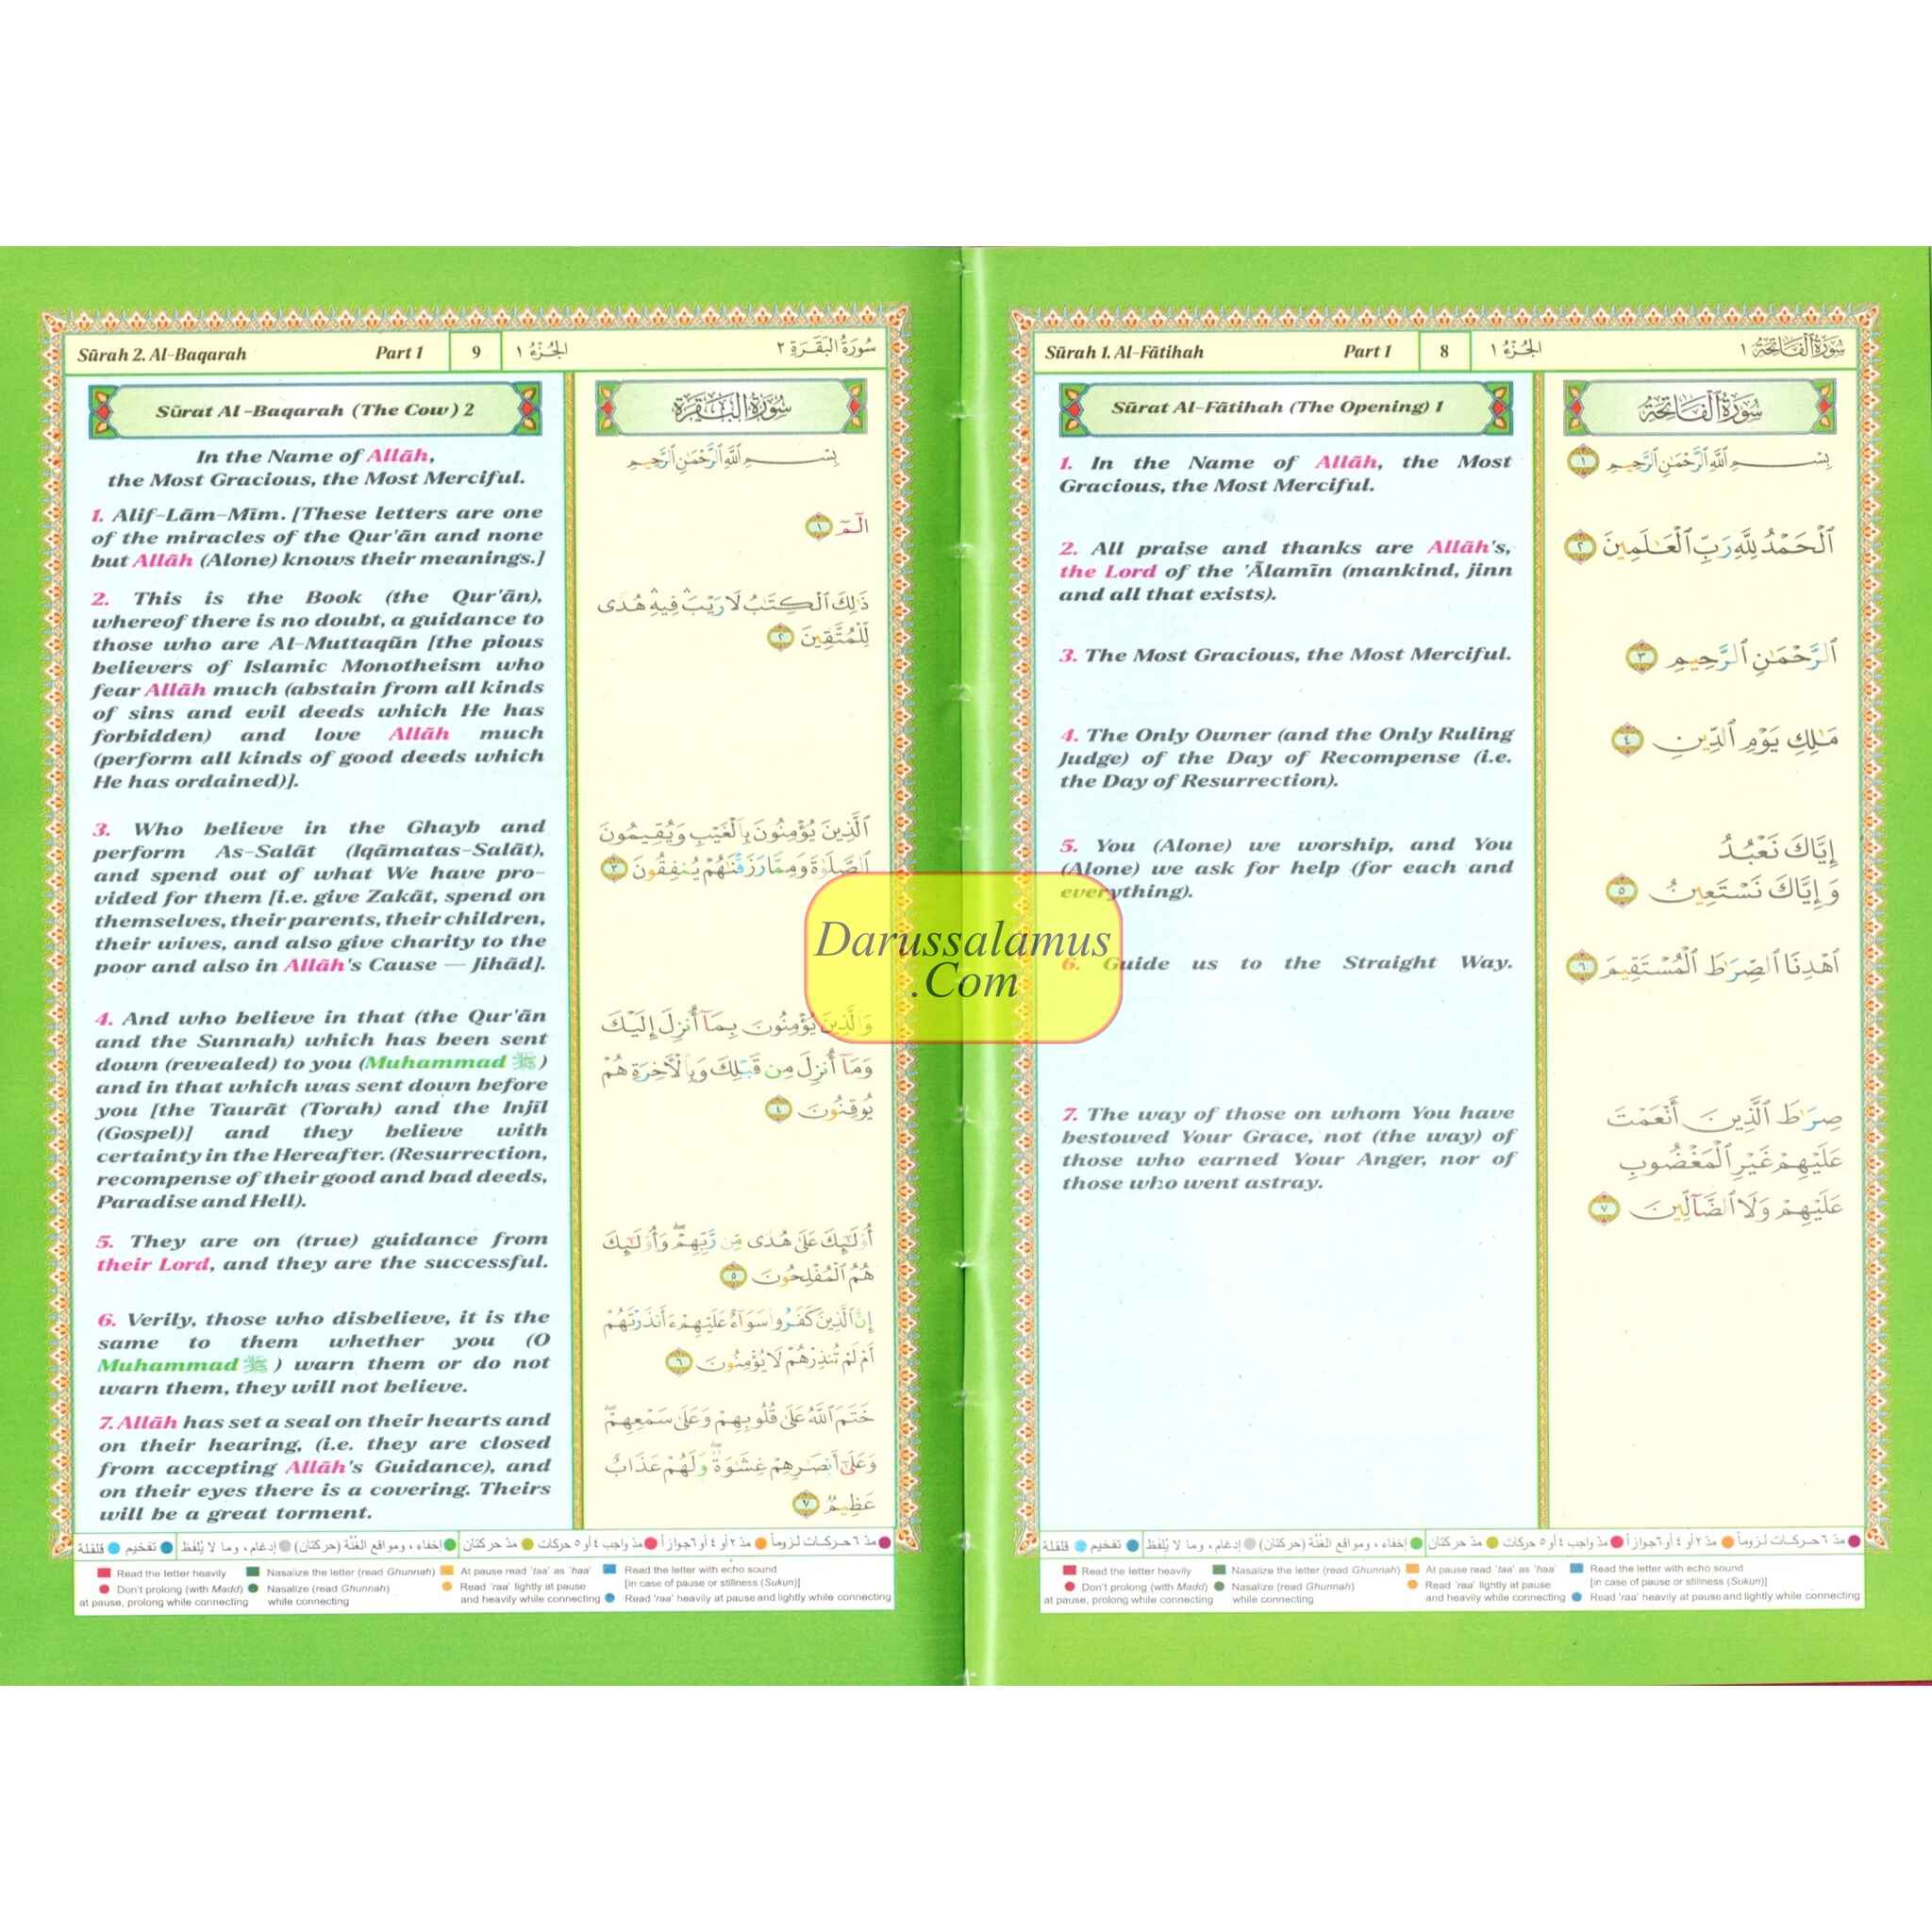 سُورَةُ الْفَاتِحَةِ ١
الجُزْءُ ١
8
Part 1
Sūrah 1. Al-Fātihah
سُورَةُ الْفَاتِحَةِ
Sūrat Al-Fātihah (The Opening) 1
بِسْمِ ٱللَّهِ ٱلرَّحْمَٰنِ ٱلرَّحِيمِ ١
ٱلْحَمْدُ لِلَّهِ رَبِّ ٱلْعَٰلَمِينَ ٢
ٱلرَّحْمَٰنِ ٱلرَّحِيمِ ٣
مَٰلِكِ يَوْمِ ٱلدِّينِ ٤
إِيَّاكَ نَعْبُدُ
وَإِيَّاكَ نَسْتَعِينُ ٥
ٱهْدِنَا ٱلصِّرَٰطَ ٱلْمُسْتَقِيمَ ٦
صِرَٰطَ ٱلَّذِينَ أَنْعَمْتَ
عَلَيْهِمْ غَيْرِ ٱلْمَغْضُوبِ
عَلَيْهِمْ وَلَا ٱلضَّآلِّينَ ٧
1. In the Name of Allāh, the Most
Gracious, the Most Merciful.
2. All praise and thanks are Allāh's,
the Lord of the 'Ālamīn (mankind, jinn
and all that exists).
3. The Most Gracious, the Most Merciful.
4. The Only Owner (and the Only Ruling
Judge) of the Day of Recompense (i.e.
the Day of Resurrection).
5. You (Alone) we worship, and You
(Alone) we ask for help (for each and
everything).
6. Guide us to the Straight Way.
7. The way of those on whom You have
bestowed Your Grace, not (the way) of
those who earned Your Anger, nor of
those who went astray.
مدّ ٦ حركات لزوماً مدّ ٢ أو ٤ أو ٦ جوازاً مدّ واجب ٤ أو ٥ حركات مدّ حركتان إخفاء، ومواقع الغُنَّة (حركتان) إدغام، وما لا يُلفَظ تفخيم قلقلة
Read the letter heavily Nasalize the letter (read Ghunnah) At pause read 'taa' as 'haa' Read the letter with echo sound
[in case of pause or stillness (Sukun)]
Don't prolong (with Madd) Nasalize (read Ghunnah) Read 'raa' lightly at pause
at pause, prolong while connecting while connecting and heavily while connecting Read 'raa' heavily at pause and lightly while connecting
سُورَةُ الْبَقَرَةِ ٢
الجُزْءُ ١
9
Part 1
Sūrah 2. Al-Baqarah
سُورَةُ الْبَقَرَةِ
Sūrat Al-Baqarah (The Cow) 2
بِسْمِ ٱللَّهِ ٱلرَّحْمَٰنِ ٱلرَّحِيمِ
الٓمٓ ١
ذَٰلِكَ ٱلْكِتَٰبُ لَا رَيْبَ ۛ فِيهِ ۛ هُدًى
لِّلْمُتَّقِينَ ٢
ٱلَّذِينَ يُؤْمِنُونَ بِٱلْغَيْبِ وَيُقِيمُونَ
ٱلصَّلَوٰةَ وَمِمَّا رَزَقْنَٰهُمْ يُنفِقُونَ ٣
وَٱلَّذِينَ يُؤْمِنُونَ بِمَآ أُنزِلَ إِلَيْكَ
وَمَآ أُنزِلَ مِن قَبْلِكَ وَبِٱلْأَخِرَةِ هُمْ
يُوقِنُونَ ٤
أُو۟لَٰٓئِكَ عَلَىٰ هُدًى مِّن رَّبِّهِمْ ۖ وَأُو۟لَٰٓئِكَ
هُمُ ٱلْمُفْلِحُونَ ٥
إِنَّ ٱلَّذِينَ كَفَرُوا۟ سَوَآءٌ عَلَيْهِمْ ءَأَنذَرْتَهُمْ
أَمْ لَمْ تُنذِرْهُمْ لَا يُؤْمِنُونَ ٦
خَتَمَ ٱللَّهُ عَلَىٰ قُلُوبِهِمْ وَعَلَىٰ سَمْعِهِمْ ۖ
وَعَلَىٰٓ أَبْصَٰرِهِمْ غِشَٰوَةٌ ۖ وَلَهُمْ عَذَابٌ
عَظِيمٌ ٧
In the Name of Allāh,
the Most Gracious, the Most Merciful.
1. Alif-Lām-Mīm. [These letters are one
of the miracles of the Qur'ān and none
but Allāh (Alone) knows their meanings.]
2. This is the Book (the Qur'ān),
whereof there is no doubt, a guidance to
those who are Al-Muttaqūn [the pious
believers of Islamic Monotheism who
fear Allāh much (abstain from all kinds
of sins and evil deeds which He has
forbidden) and love Allāh much
(perform all kinds of good deeds which
He has ordained)].
3. Who believe in the Ghayb and
perform As-Salāt (Iqāmatas-Salāt),
and spend out of what We have pro-
vided for them [i.e. give Zakāt, spend on
themselves, their parents, their children,
their wives, and also give charity to the
poor and also in Allāh's Cause — Jihād].
4. And who believe in that (the Qur'ān
and the Sunnah) which has been sent
down (revealed) to you (Muhammad ﷺ)
and in that which was sent down before
you [the Taurāt (Torah) and the Injīl
(Gospel)] and they believe with
certainty in the Hereafter. (Resurrection,
recompense of their good and bad deeds,
Paradise and Hell).
5. They are on (true) guidance from
their Lord, and they are the successful.
6. Verily, those who disbelieve, it is the
same to them whether you (O
Muhammad ﷺ) warn them or do not
warn them, they will not believe.
7. Allāh has set a seal on their hearts and
on their hearing, (i.e. they are closed
from accepting Allāh's Guidance), and
on their eyes there is a covering. Theirs
will be a great torment.
مدّ ٦ حركات لزوماً مدّ ٢ أو ٤ أو ٦ جوازاً مدّ واجب ٤ أو ٥ حركات مدّ حركتان إخفاء، ومواقع الغُنَّة (حركتان) إدغام، وما لا يُلفَظ تفخيم قلقلة
Read the letter heavily Nasalize the letter (read Ghunnah) At pause read 'taa' as 'haa' Read the letter with echo sound
[in case of pause or stillness (Sukun)]
Don't prolong (with Madd) Nasalize (read Ghunnah) Read 'raa' lightly at pause
at pause, prolong while connecting while connecting and heavily while connecting Read 'raa' heavily at pause and lightly while connecting
Darussalamus
.Com